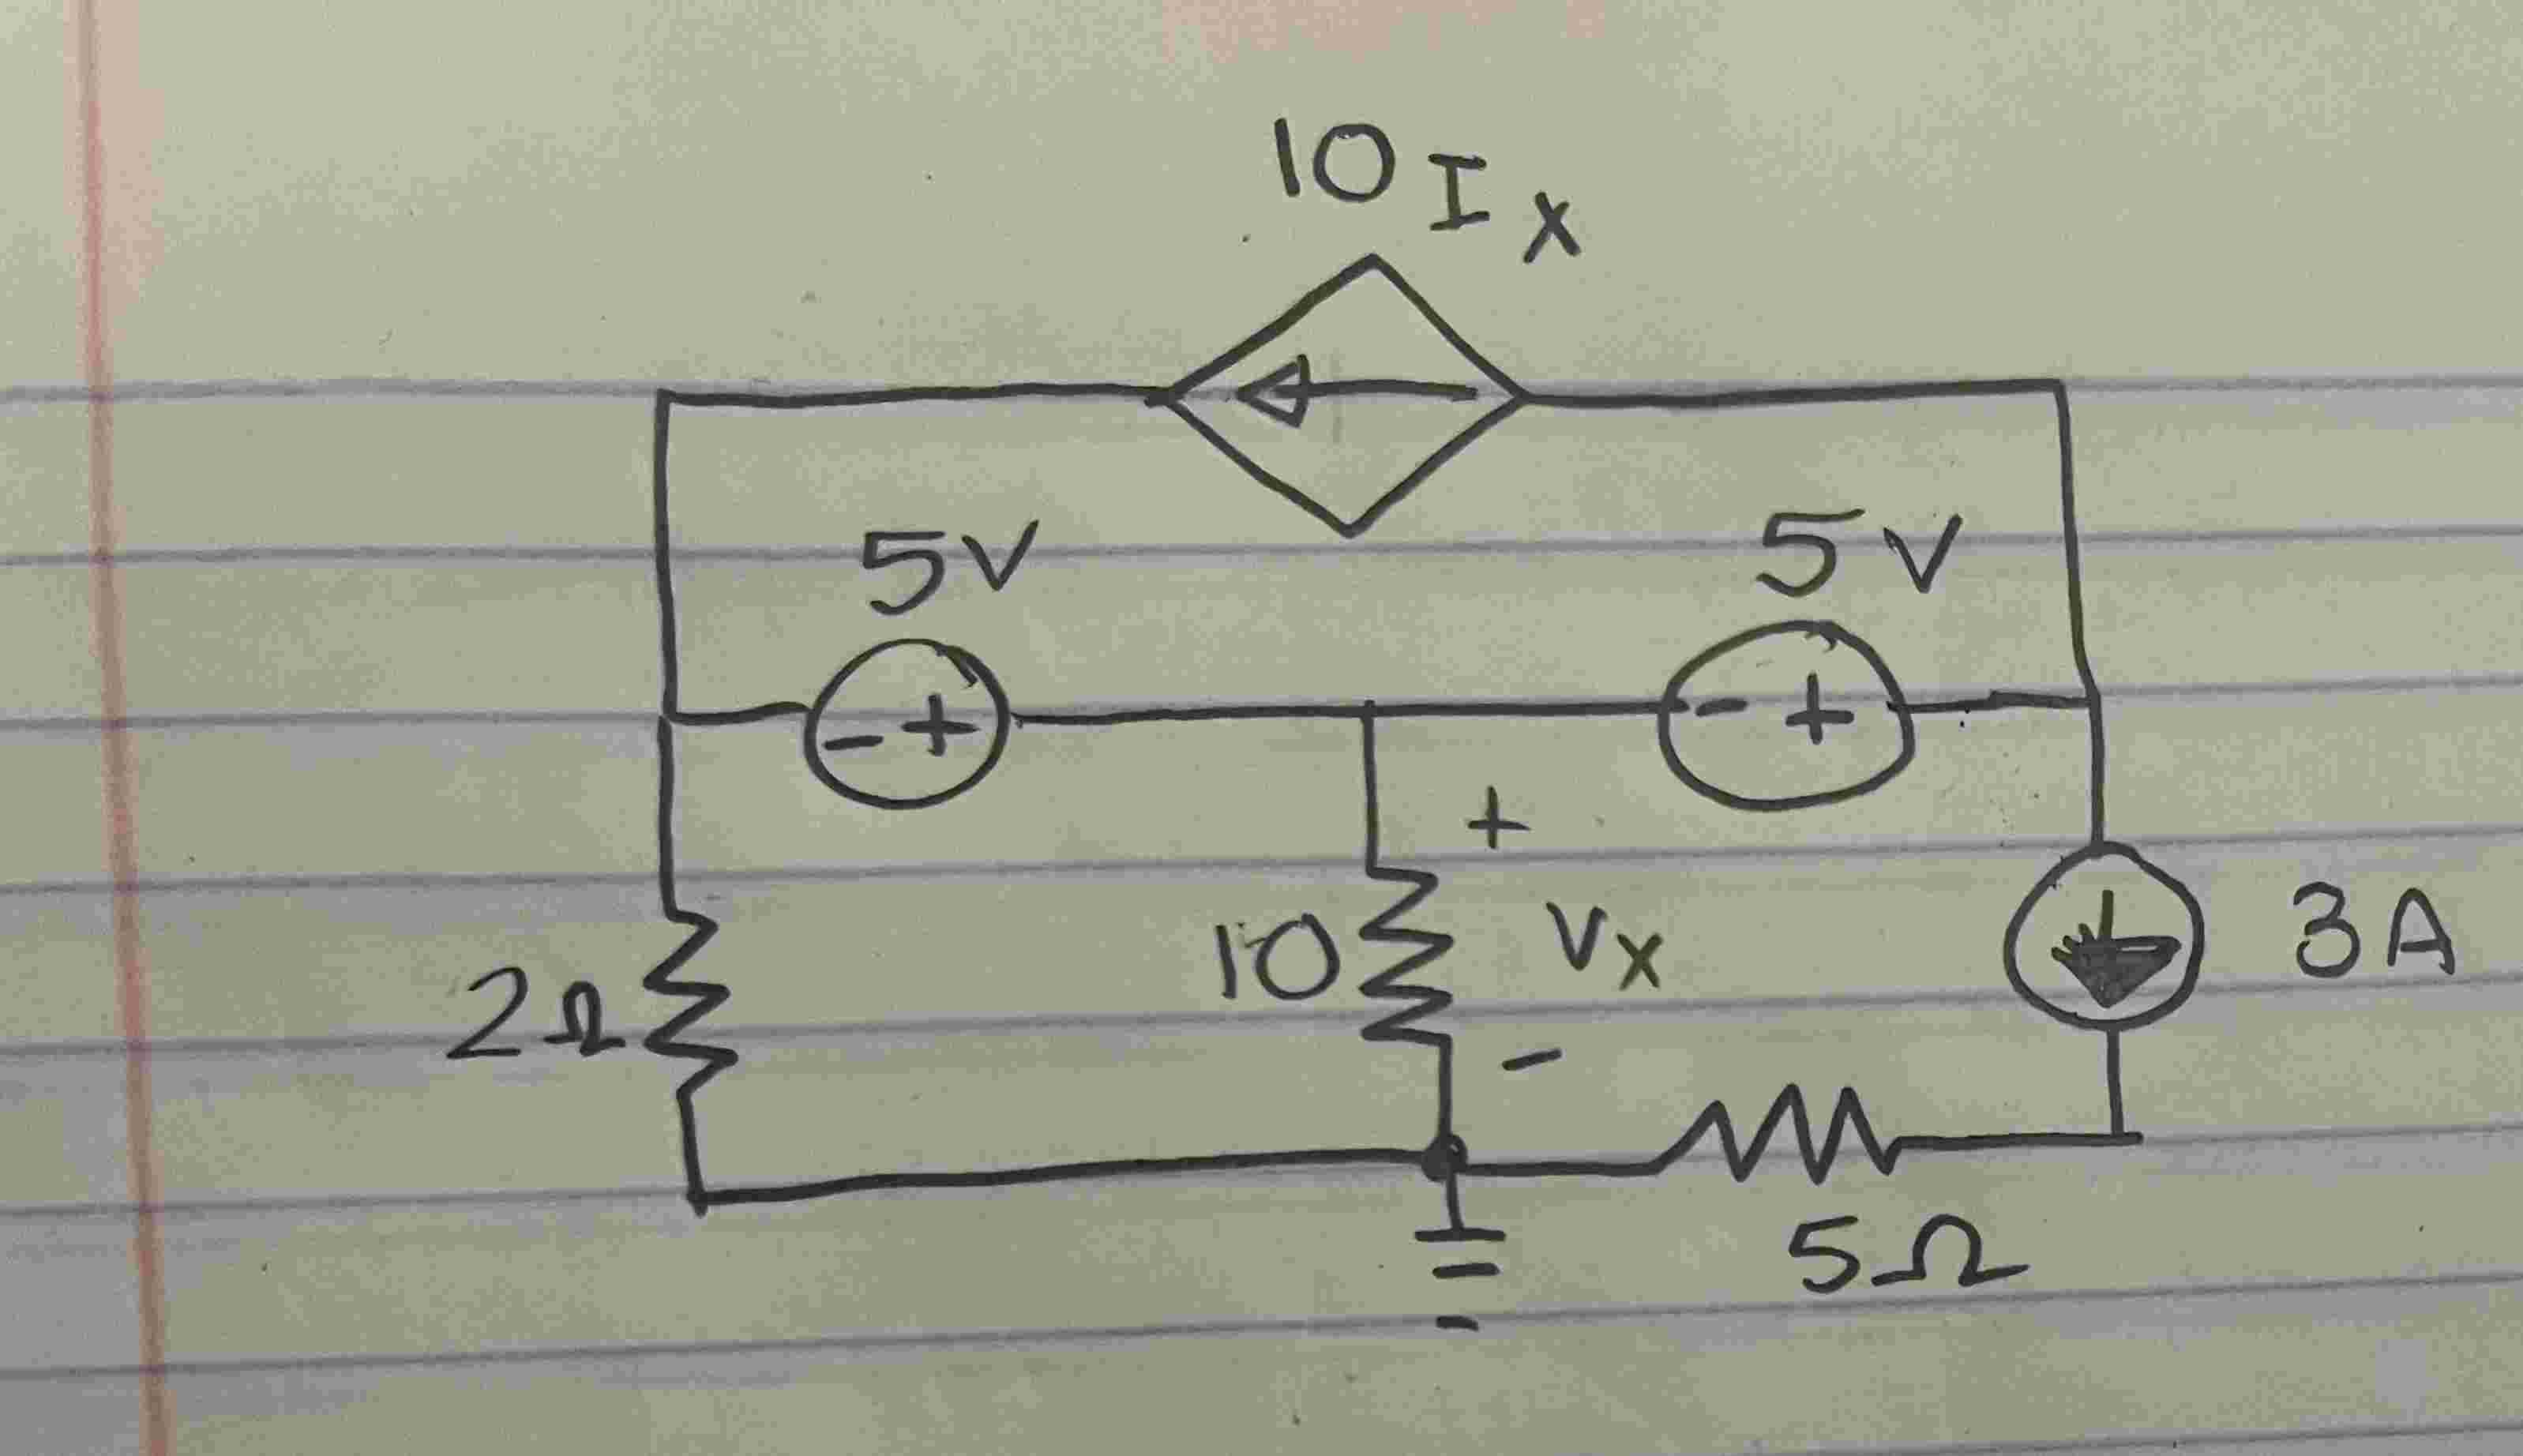 10 I x
5V
5V
- +
- +
+
10
Vx
-
3A
2Ω
5Ω